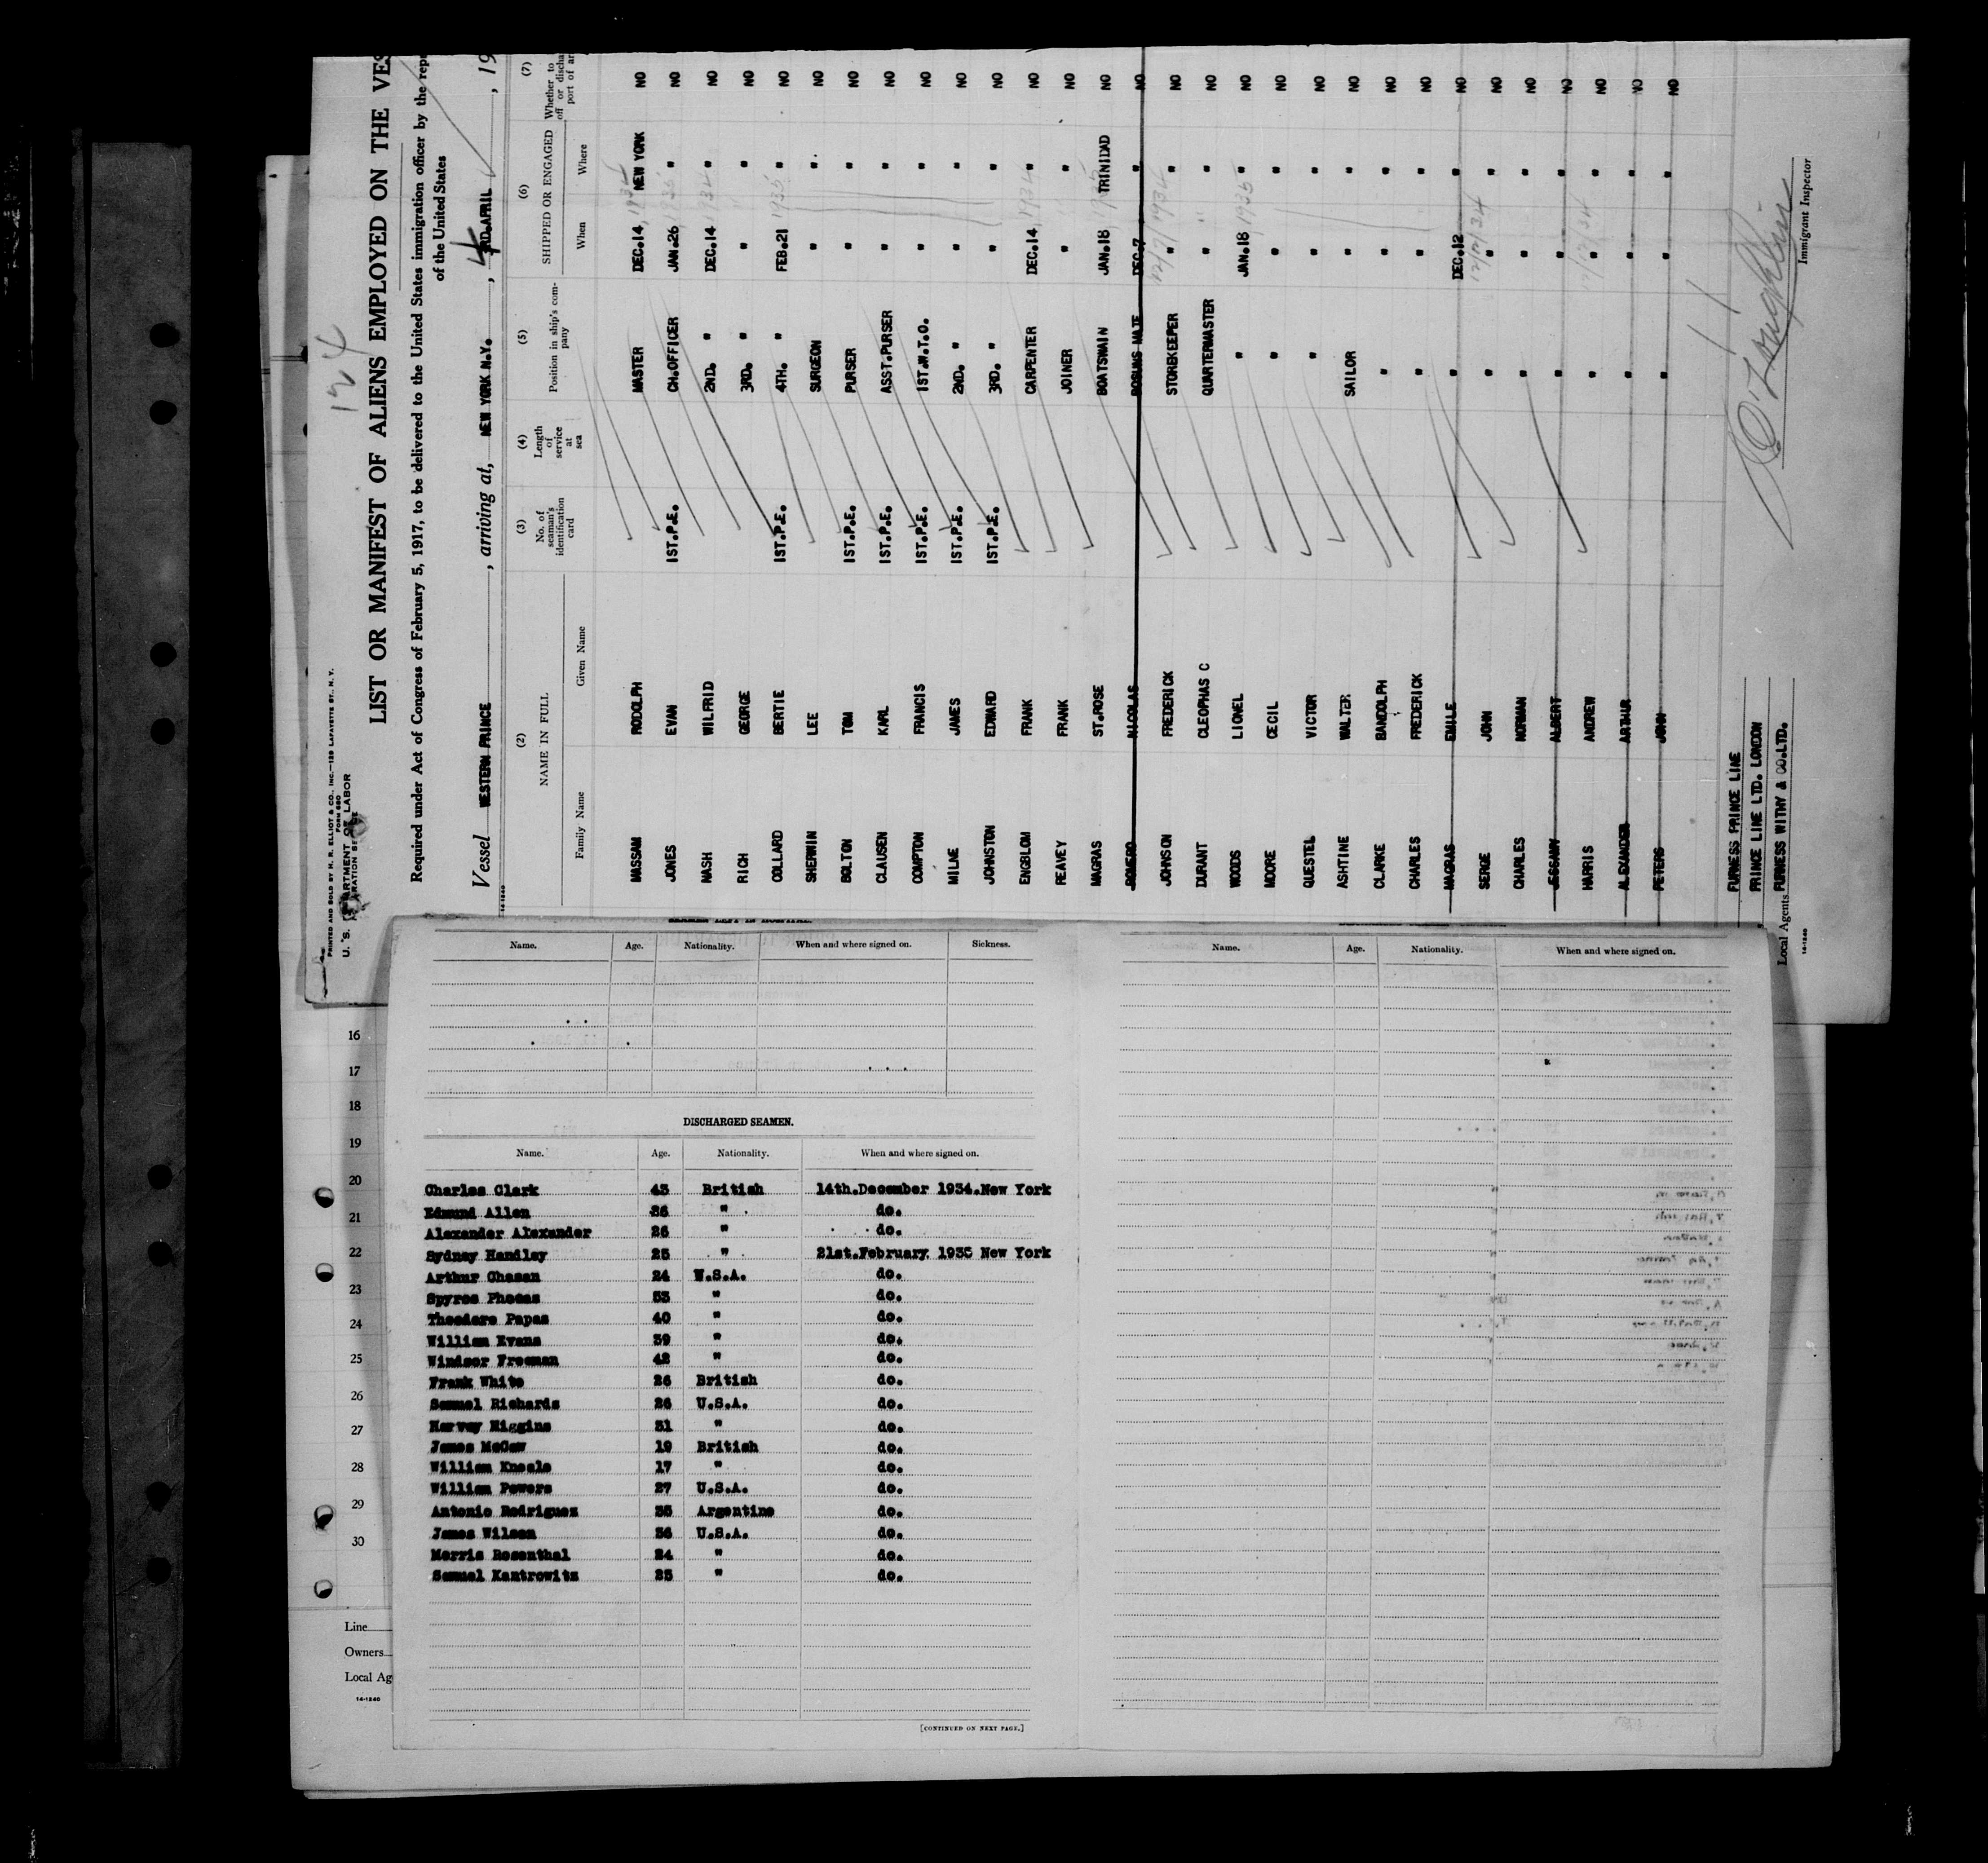 124
PRINTED AND SOLD BY H. R. ELLIOT & CO., INC.—129 LAFAYETTE ST., N. Y.
FORM 680
U. S. DEPARTMENT OF LABOR
LIST OR MANIFEST OF ALIENS EMPLOYED ON THE VES
Required under Act of Congress of February 5, 1917, to be delivered to the United States immigration officer by the repr
of the United States
Vessel WESTERN PRINCE, arriving at, NEW YORK N.Y., 4 RD. APRIL, 19
(2) (3) (4) (5) (6) (7)
NAME IN FULL No. of seaman's identification card Length of service at sea Position in ship's company SHIPPED OR ENGAGED Whether to off or discha port of ar
Family Name Given Name When Where
MASSAM RODOLPH MASTER DEC.14, 1934 NEW YORK NO
JONES EVAN 1ST.P.E. CH.OFFICER JAN.26, 1935 " NO
NASH WILFRID 2ND. " DEC.14 1934 " NO
RICH GEORGE 3RD. " " " NO
COLLARD BERTIE 1ST.P.E. 4TH. " FEB.21 1935 " NO
SHERWIN LEE SURGEON " " NO
BOLTON TOM 1ST.P.E. PURSER " " NO
CLAUSEN KARL 1ST.P.E. ASST.PURSER " " NO
COMPTON FRANCIS 1ST.P.E. 1ST.W.T.O. " " NO
MILNE JAMES 1ST.P.E. 2ND. " " " NO
JOHNSTON EDWARD 1ST.P.E. 3RD. " " " NO
ENGBLOM FRANK CARPENTER DEC.14, 1934 " NO
PEAVEY FRANK JOINER " " NO
MAGRAS ST.ROSE BOATSWAIN JAN.18 TRINIDAD NO
ROMERO NICOLAS BOSUNS MATE DEC.7 " NO
JOHNSON FREDERICK STOREKEEPER " 12/7/1934 " NO
DURANT CLEOPHAS C QUARTERMASTER " " NO
WOODS LIONEL " JAN.18 1935 " NO
MOORE CECIL " " " NO
QUESTEL VICTOR " " " NO
ASHTINE WALTER SAILOR " " NO
CLARKE RANDOLPH " " " NO
CHARLES FREDERICK " " " NO
MAGRAS EMILE " DEC.12 " NO
SERGE JOHN " " 12/12/34 " NO
CHARLES NORMAN " " " NO
JESSAMY ALBERT " " " NO
HARRIS ANDREW " " " NO
ALEXANDER ARTHUR " " " NO
PETERS JOHN " " " NO
FURNESS PRINCE LINE
PRINCE LINE LTD. LONDON
Local Agents FURNESS WITHY & CO.LTD.
14-1240
Immigrant Inspector
Name. Age. Nationality. When and where signed on. Sickness.
Name. Age. Nationality. When and where signed on.
DISCHARGED SEAMEN.
Name. Age. Nationality. When and where signed on.
Charles Clark 43 British 14th.December 1934.New York
Edmund Allen 26 " do.
Alexander Alexander 26 " do.
Sydney Handley 25 " 21st.February 1935 New York
Arthur Chasan 24 U.S.A. do.
Spyros Phocas 53 " do.
Theodore Papas 40 " do.
William Evans 39 " do.
Windsor Freeman 42 " do.
Frank White 26 British do.
Samuel Richards 26 U.S.A. do.
Harvey Higgins 31 " do.
James McCaw 19 British do.
William Kneale 17 " do.
William Powers 27 U.S.A. do.
Antonio Rodriguez 35 Argentine do.
James Wilson 36 U.S.A. do.
Morris Rosenthal 24 " do.
Samuel Kantrowitz 25 " do.
[CONTINUED ON NEXT PAGE.]
16
17
18
19
20
21
22
23
24
25
26
27
28
29
30
Line
Owners
Local Ag
14-1240